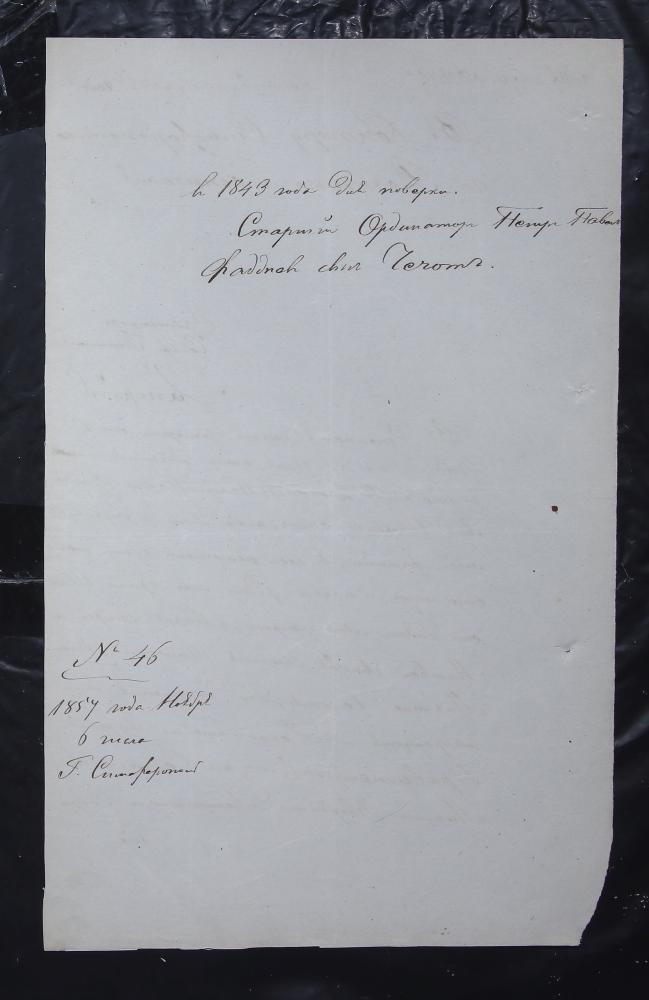 и 1843 года для поверки.
Старший Ординатор Петр Павел
Фаддеев сын Чечотъ.
№ 46
1857 года Ноября
6 числа
Г. Симферополь